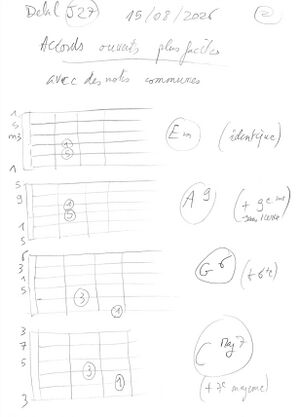 J27 15/08/2026 2
Accords ouverts plus faciles
avec des notes communes
1
5
m3
1
1
5
Em (identique)
5
9
1
5
1
5
A9 (+ 9e
6
3
1
5
3
3
1
G6 (+ 6te)
3
7
5
3
3
1
C Maj7
(+ 7e majeure)